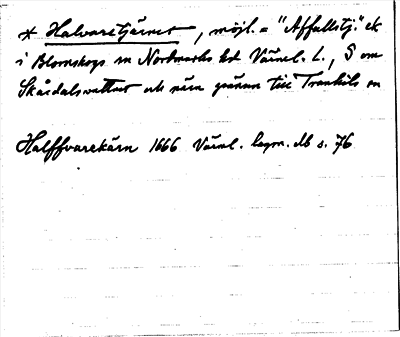 * Halvarstjärnet, möjl. = "Affallstj." ek
i Blomskogs sn Nordmarks hd Värml. l., S om
Skårdalsvattnet och nära gränsen till Trankils sn
Halffvarekärn 1666 Värml. lagm. db s. 76